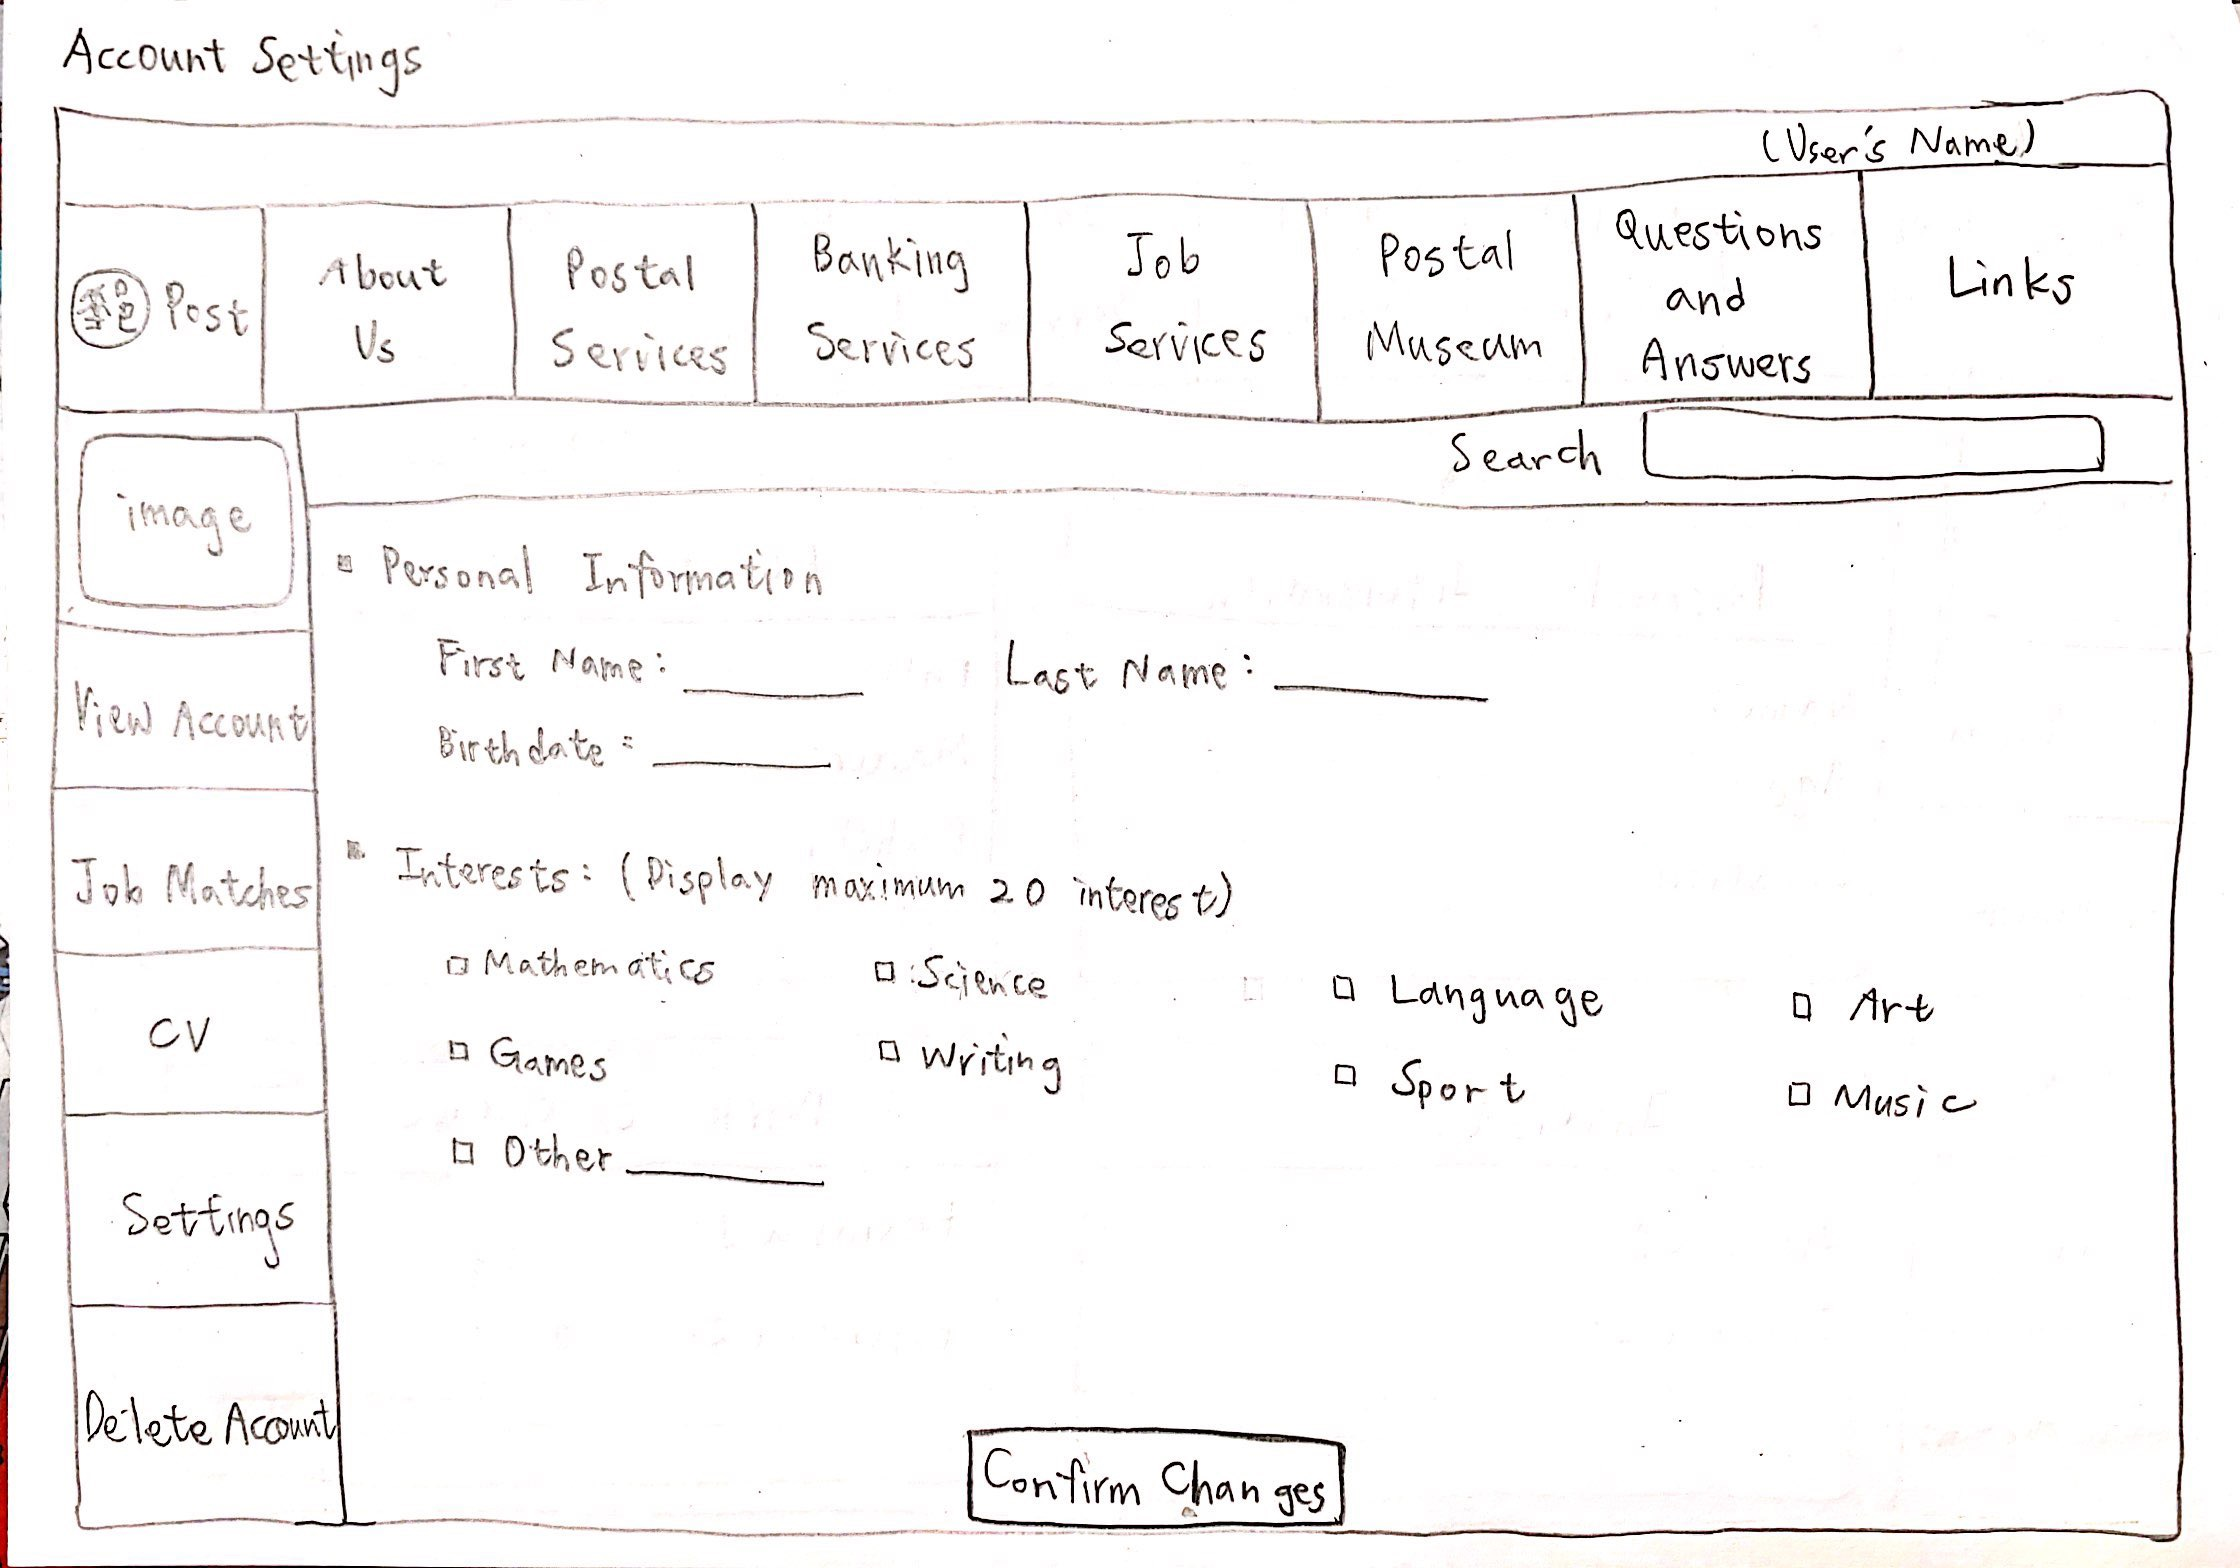 Account Settings
(User's Name)
Post
About
Us
Postal
Services
Banking
Services
Job
Services
Postal
Museum
Questions
and
Answers
Links
Search
image
View Account
Job Matches
CV
Settings
Delete Account
▪ Personal Information
First Name: ______ Last Name: ______
Birthdate: ______
▪ Interests: (Display maximum 20 interest)
□ Mathematics □ Science □ Language □ Art
□ Games □ Writing □ Sport □ Music
□ Other ______
Confirm Changes